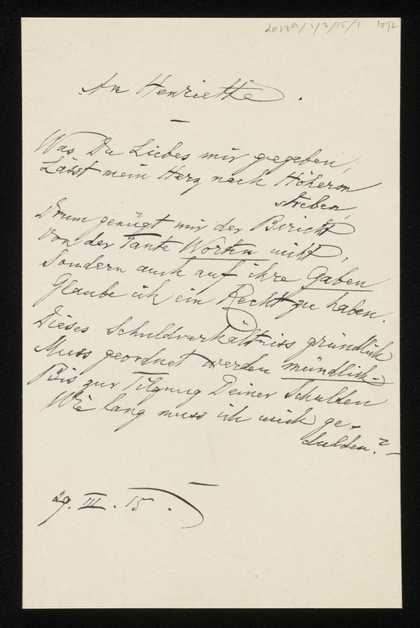 An Henriette.
Was Du Liebes mir gegeben,
Lässt mein Herz nach Höherem
streben,
Drum genügt mir der Bericht
Von der Tante Worten nicht,
Sondern auch auf ihre Gaben
Glaube ich ein Recht zu haben.
Dieses Schuldverhältniss gründlich
Muss geordnet werden mündlich –
Bis zur Tilgung Deiner Schulden
Wie lang muss ich mich ge-
dulden? –
29. III. 15.